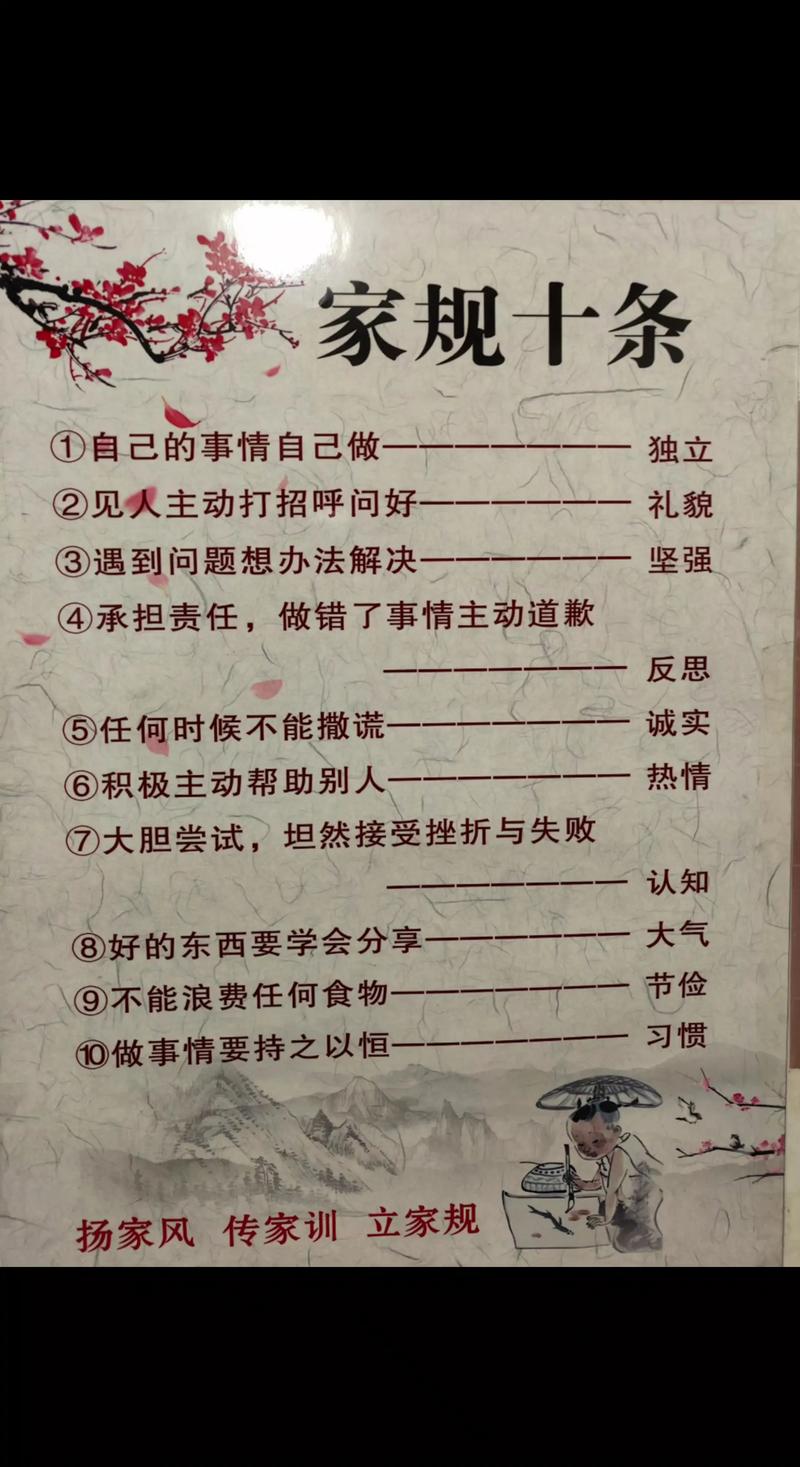 家规十条
①自己的事情自己做———————独立
②见人主动打招呼问好——————礼貌
③遇到问题想办法解决——————坚强
④承担责任，做错了事情主动道歉
———————反思
⑤任何时候不能撒谎———————诚实
⑥积极主动帮助别人———————热情
⑦大胆尝试，坦然接受挫折与失败
———————认知
⑧好的东西要学会分享——————大气
⑨不能浪费任何食物———————节俭
⑩做事情要持之以恒———————习惯
扬家风 传家训 立家规